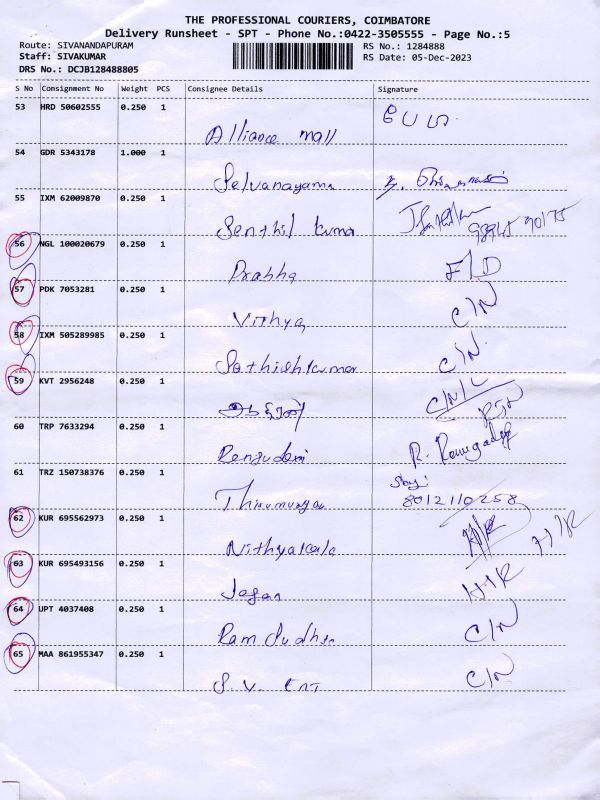 THE PROFESSIONAL COURIERS, COIMBATORE
Delivery Runsheet - SPT - Phone No.:0422-3505555 - Page No.:5
Route: SIVANANDAPURAM RS No.: 1284888
Staff: SIVAKUMAR RS Date: 05-Dec-2023
DRS No.: DCJB128488805
S No Consignment No Weight PCS Consignee Details Signature
53 HRD 50602555 0.250 1
Alliance mall
54 GDR 5343178 1.000 1
Selvanayama
55 IXM 62009870 0.250 1
Senthil kuma
56 NGL 100020679 0.250 1
Prabha F/D
57 PDK 7053281 0.250 1
Vithya C/N
58 IXM 505289985 0.250 1
Sathishkumar C/N
59 KVT 2956248 0.250 1
C/N/L
60 TRP 7633294 0.250 1
Rengudevi
61 TRZ 150738376 0.250 1
Thirumurgan 8012110258
62 KUR 695562973 0.250 1
Nithyakala H/R
63 KUR 695493156 0.250 1
Jegan H/R
64 UPT 4037408 0.250 1
Ram Sudhir C/N
65 MAA 861955347 0.250 1
S. V. Ent C/N